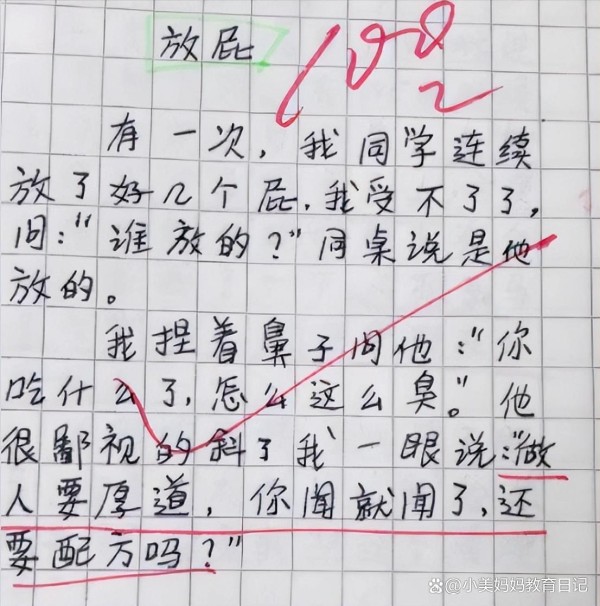 放屁
100
有一次，我同学连续
放了好几个屁，我受不了了，
问："谁放的？"同桌说是他
放的。
我捏着鼻子问他："你
吃什么了，怎么这么臭。"他
很鄙视的斜了我一眼说："做
人要厚道，你闻就闻了，还
要配方吗？"
@小美妈妈教育日记